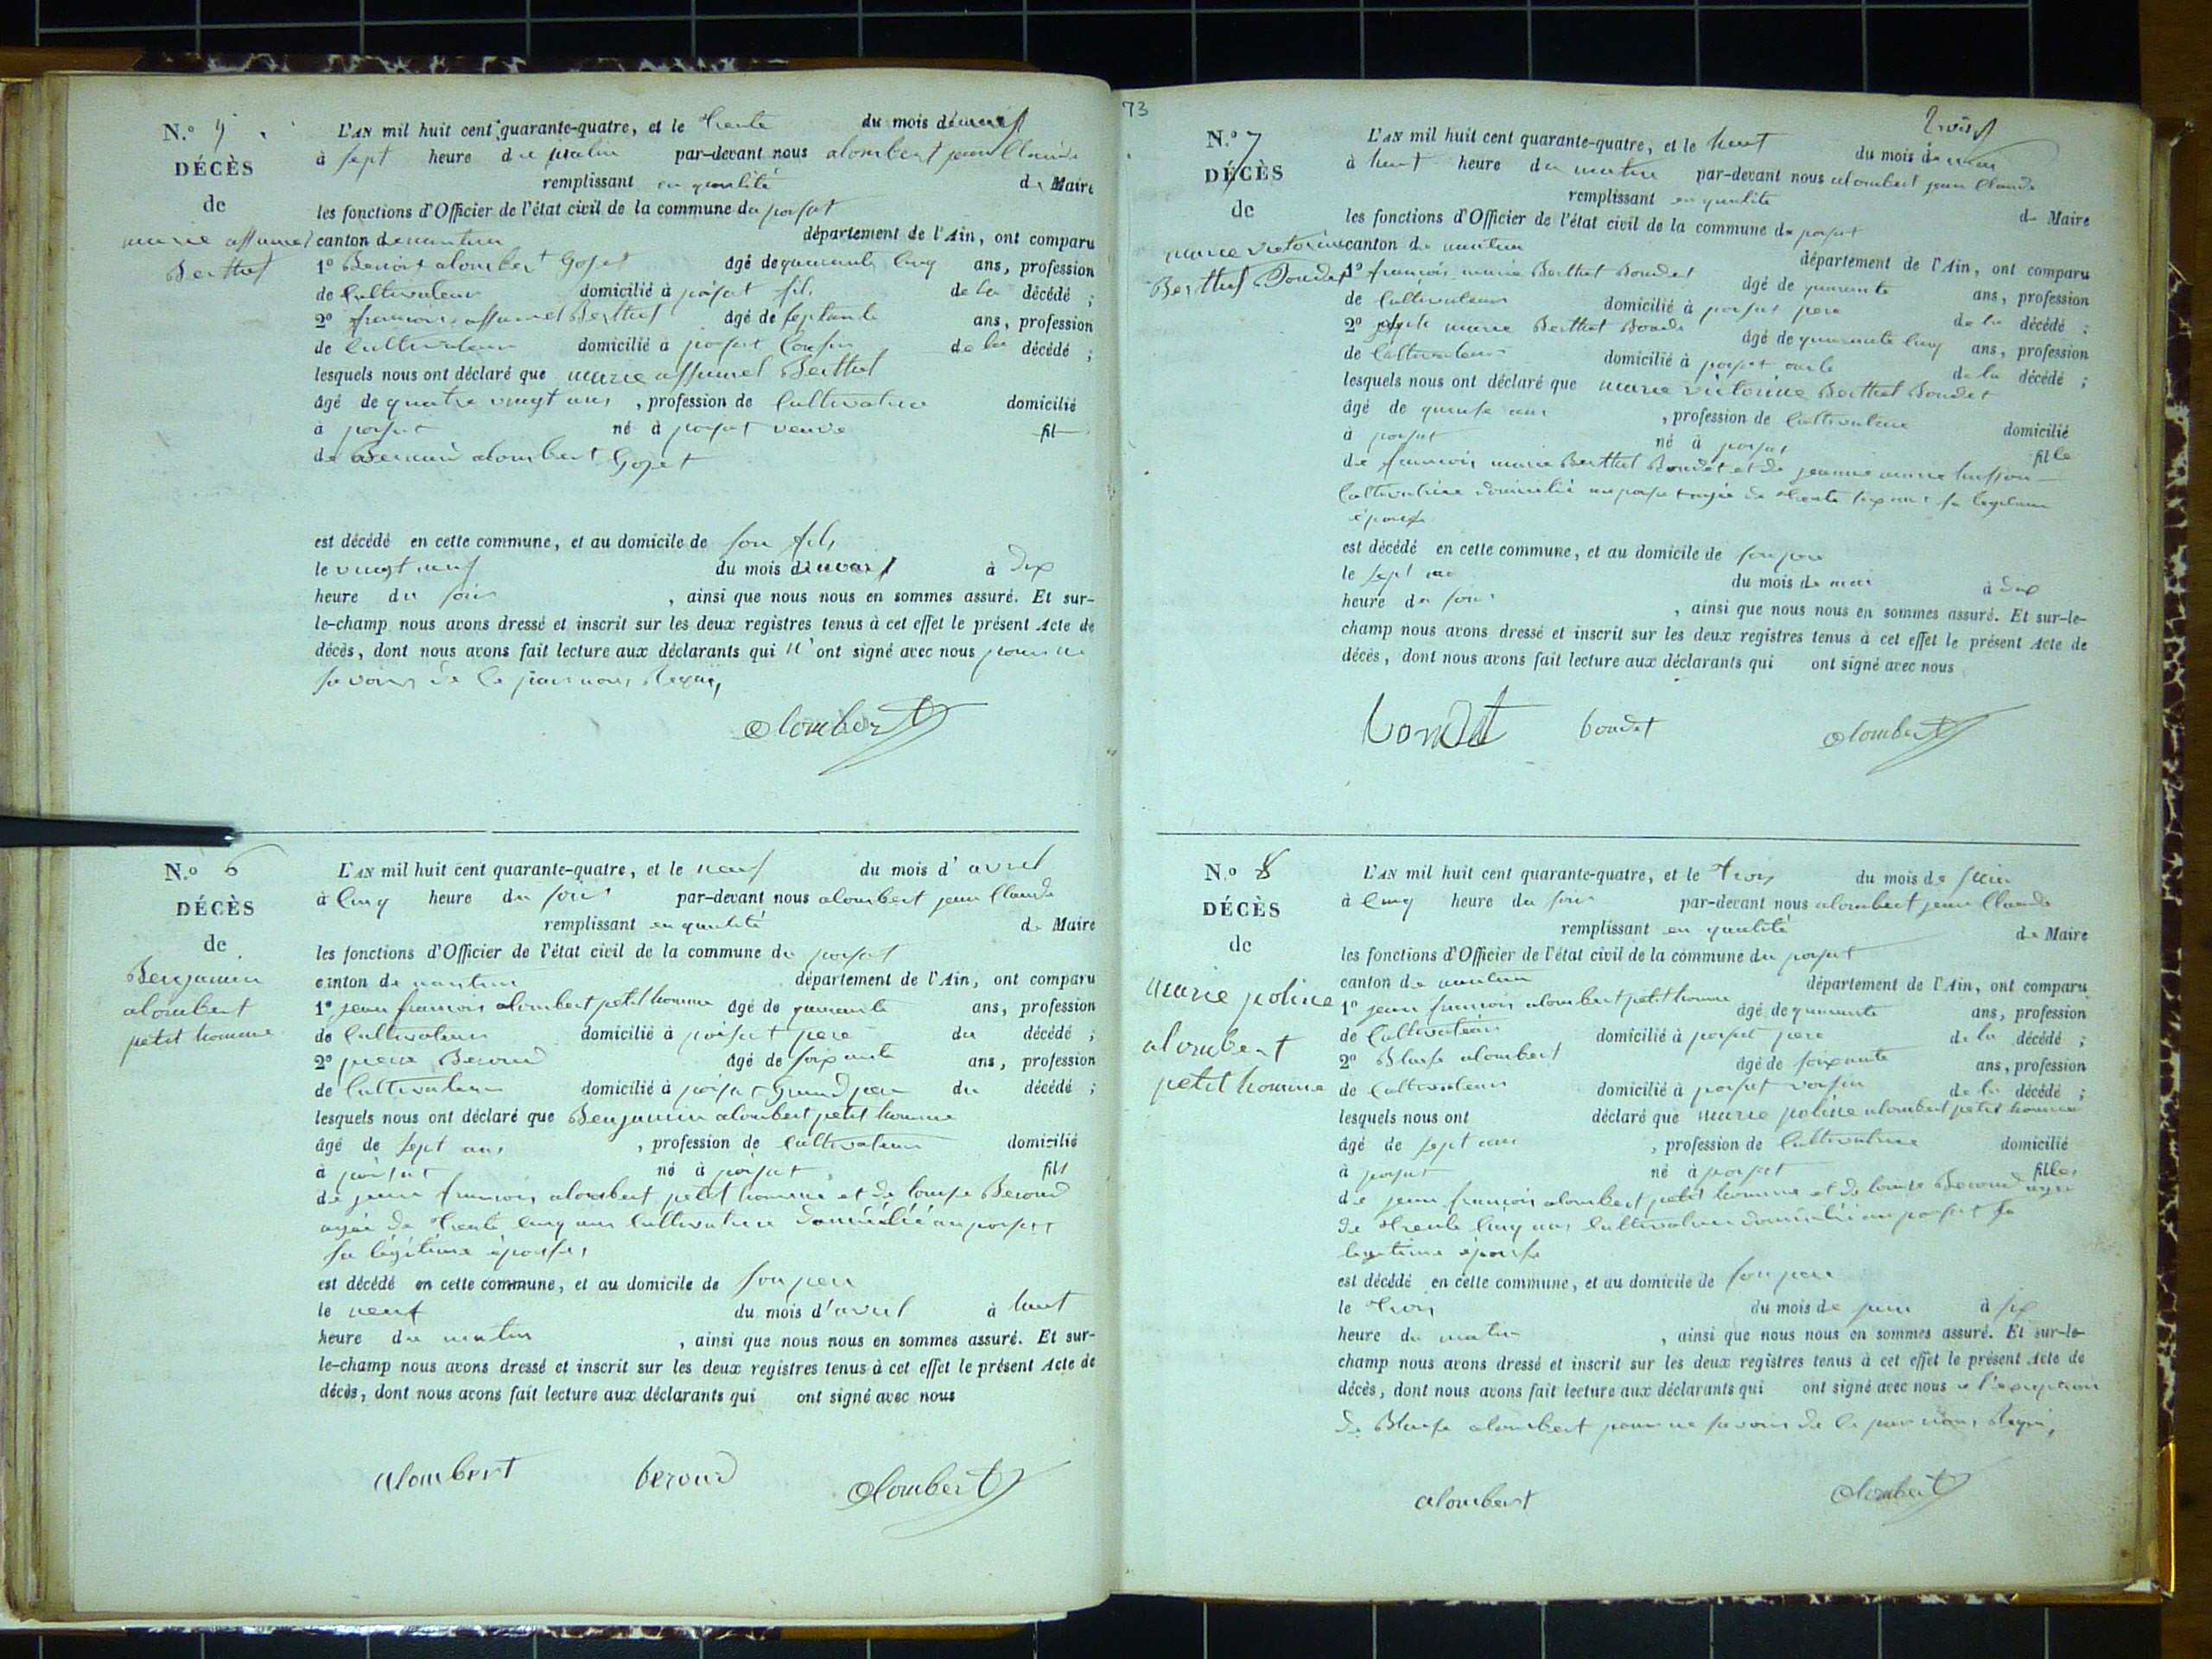 N.o 5
DÉCÈS
de
marie assumel
Berthet
L'AN mil huit cent quarante-quatre, et le trente du mois de mars
à sept heure du matin par-devant nous alombert jean Claude
remplissant en qualité de Maire
les fonctions d'Officier de l'état civil de la commune du poizat
canton de nantua département de l'Ain, ont comparu
1o Benoit alombert Gojet âgé de quarante cinq ans, profession
de Cultivateur domicilié à poizat fils de la décédé ;
2o francois assumel Berthet âgé de septante ans, profession
de Cultivateur domicilié à poizat Cousin de la décédé ;
lesquels nous ont déclaré que marie assumel Berthet
âgé de quatre vingt ans , profession de Cultivatrice domicilié
à poizat né à poizat veuve fil
de alombert Gojet
est décédé en cette commune, et au domicile de son fils
le vingt neuf du mois de mars à dix
heure du soir , ainsi que nous nous en sommes assuré. Et sur-
le-champ nous avons dressé et inscrit sur les deux registres tenus à cet effet le présent Acte de
décès, dont nous avons fait lecture aux déclarants qui n' ont signé avec nous pour ne
savoir de ce par nous Requis,
alombert
N.o 6
DÉCÈS
de
Benjamin
alombert
petit homme
L'AN mil huit cent quarante-quatre, et le neuf du mois d' avril
à Cinq heure du soir par-devant nous alombert jean Claude
remplissant en qualité de Maire
les fonctions d'Officier de l'état civil de la commune du poizat
canton de nantua département de l'Ain, ont comparu
1o jean francois alombert petit homme âgé de quarante ans, profession
de Cultivateur domicilié à poizat pere du décédé ;
2o pierre Beroud âgé de soixante ans, profession
de Cultivateur domicilié à poizat Grand pere du décédé ;
lesquels nous ont déclaré que Benjamin alombert petit homme
âgé de sept ans , profession de Cultivateur domicilié
à poizat né à poizat fils
de jean francois alombert petit homme et de louise Beroud
agée de trente Cinq ans Cultivatrice domicilié au poizat
sa légitime épouse,
est décédé en cette commune, et au domicile de son pere
le neuf du mois d'avril à huit
heure du matin , ainsi que nous nous en sommes assuré. Et sur-
le-champ nous avons dressé et inscrit sur les deux registres tenus à cet effet le présent Acte de
décès, dont nous avons fait lecture aux déclarants qui ont signé avec nous
alombert beroud alombert
73
N.o 7
DÉCÈS
de
marie victorine
Berthet Boudet
L'AN mil huit cent quarante-quatre, et le huit du mois de mai
à huit heure du matin par-devant nous alombert jean Claude
remplissant en qualité de Maire
les fonctions d'Officier de l'état civil de la commune du poizat
canton de nantua département de l'Ain, ont comparu
1o francois marie Berthet Boudet âgé de quarante ans, profession
de Cultivateur domicilié à poizat pere de la décédé ;
2o marie Berthet Boudet âgé de quarante Cinq ans, profession
de Cultivateur domicilié à poizat oncle de la décédé ;
lesquels nous ont déclaré que marie victorine Berthet Boudet
âgé de quinze ans , profession de Cultivatrice domicilié
à poizat né à poizat fille
de francois marie Berthet Boudet et de jeanne marie
Cultivatrice domicilié au poizat agée de trente six ans sa legitime
épouse
est décédé en cette commune, et au domicile de son pere
le sept du mois de mai à dix
heure du soir , ainsi que nous nous en sommes assuré. Et sur-le-
champ nous avons dressé et inscrit sur les deux registres tenus à cet effet le présent Acte de
décès, dont nous avons fait lecture aux déclarants qui ont signé avec nous
boudet alombert
N.o 8
DÉCÈS
de
marie poline
alombert
petit homme
L'AN mil huit cent quarante-quatre, et le trois du mois de juin
à Cinq heure du soir par-devant nous alombert jean Claude
remplissant en qualité de Maire
les fonctions d'Officier de l'état civil de la commune du poizat
canton de nantua département de l'Ain, ont comparu
1o jean francois alombert petit homme âgé de quarante ans, profession
de Cultivateur domicilié à poizat pere de la décédé ;
2o Blaise alombert âgé de soixante ans, profession
de Cultivateur domicilié à poizat voisin de la décédé ;
lesquels nous ont déclaré que marie poline alombert petit homme
âgé de sept ans , profession de Cultivatrice domicilié
à poizat né à poizat fille
de jean francois alombert petit homme et de louise Beroud agée
de trente Cinq ans Cultivatrice domicilié au poizat sa
legitime épouse
est décédé en cette commune, et au domicile de son pere
le trois du mois de juin à six
heure du matin , ainsi que nous nous en sommes assuré. Et sur-le-
champ nous avons dressé et inscrit sur les deux registres tenus à cet effet le présent Acte de
décès, dont nous avons fait lecture aux déclarants qui ont signé avec nous a l'exception
de Blaise alombert pour ne savoir de ce par nous Requi,
alombert alombert